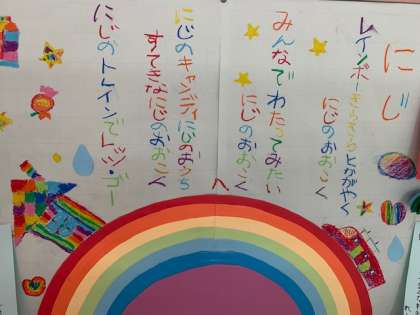 にじ
レインボーきらきらとかがやく
にじのおおこく
みんなでわたってみたい
にじのおおこく
へ
にじのキャンディにじのおうち
すてきなにじのおおこく
にじのトレインでレッツ・ゴー